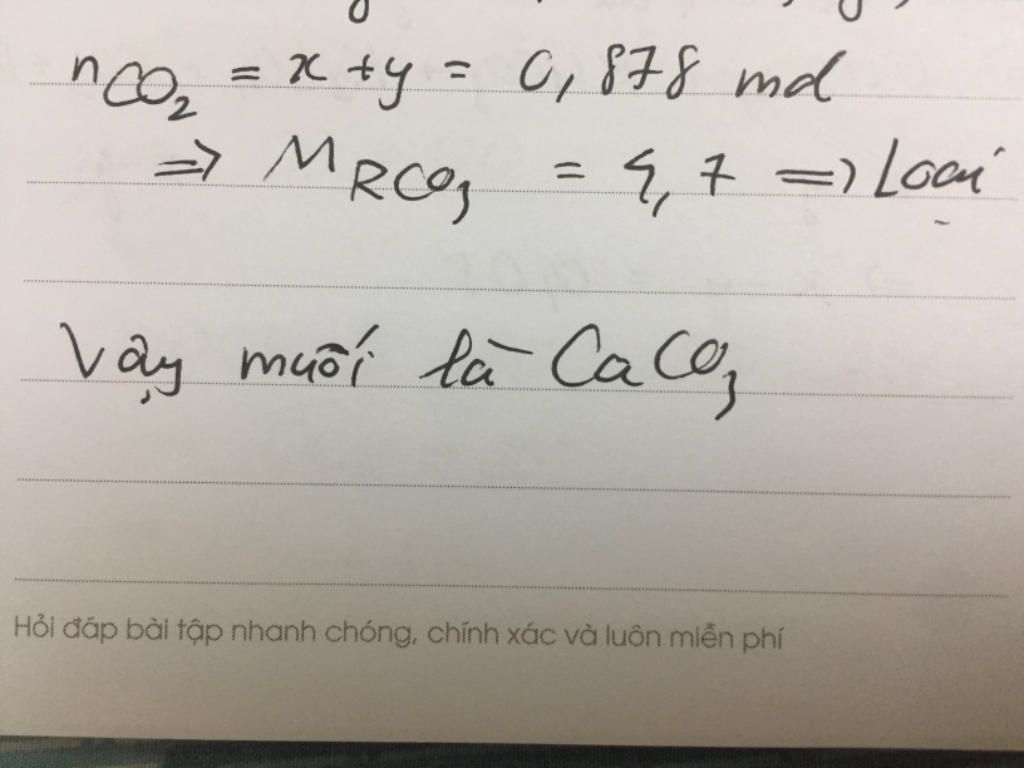 nCO₂ = x + y = 0,878 mol
=> M RCO₃ = 4,7 => Loại
Vậy muối là CaCO₃
Hỏi đáp bài tập nhanh chóng, chính xác và luôn miễn phí